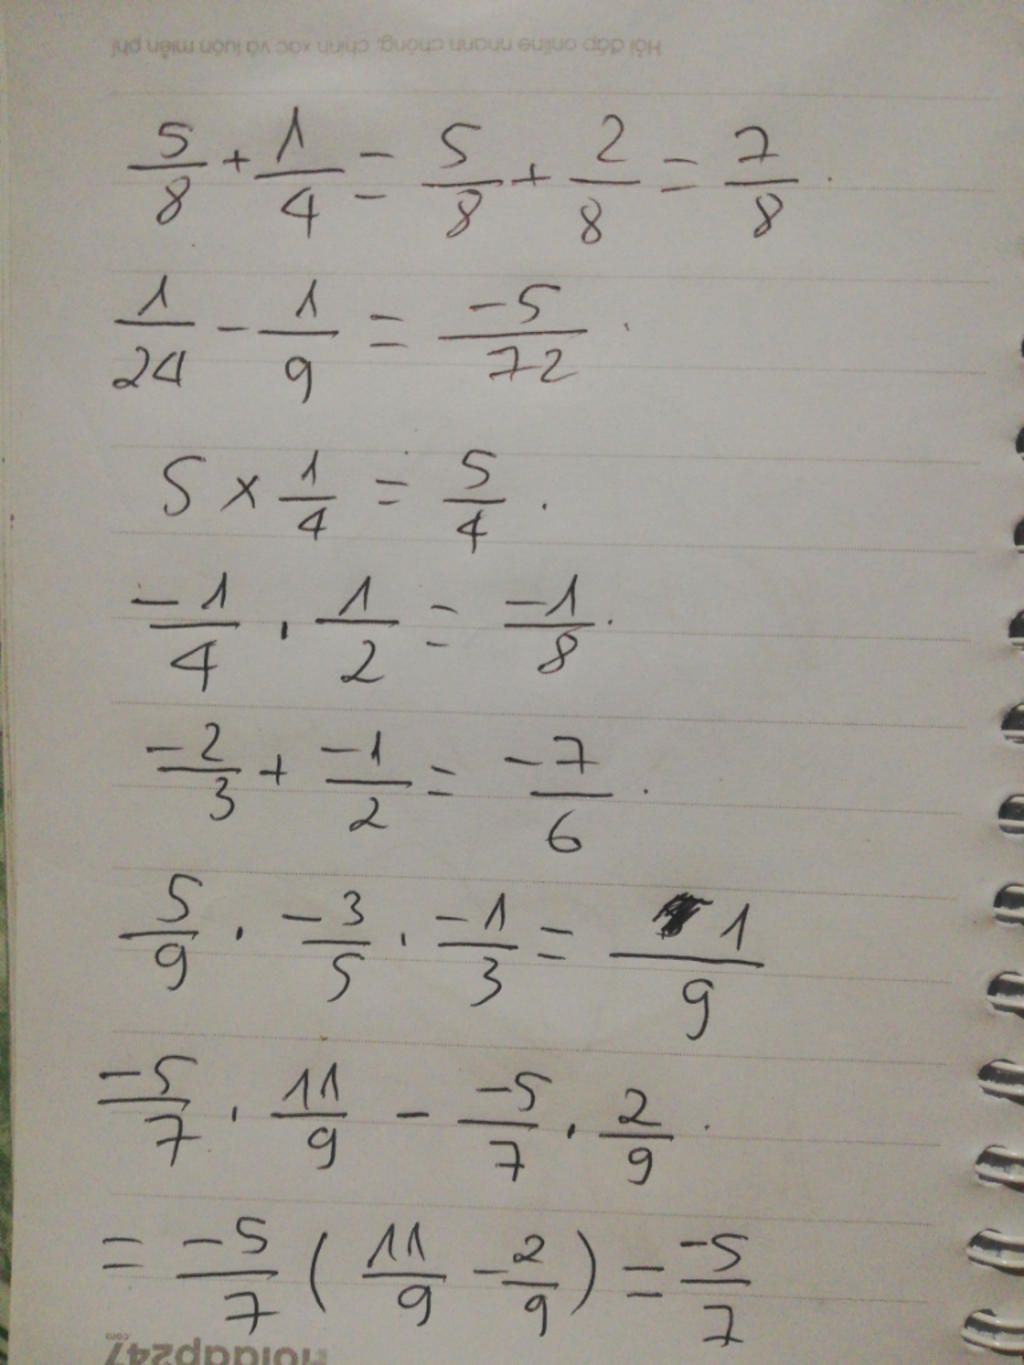 Hỏi đáp online nhanh chóng, chính xác và luôn miễn phí
5/8 + 1/4 = 5/8 + 2/8 = 7/8 .
1/24 - 1/9 = -5/72 .
5 × 1/4 = 5/4 .
-1/4 . 1/2 = -1/8 .
-2/3 + -1/2 = -7/6 .
5/9 . -3/5 . -1/3 = 1/9
-5/7 . 11/9 - -5/7 . 2/9 .
= -5/7 ( 11/9 - 2/9 ) = -5/7
Hoidap247.com